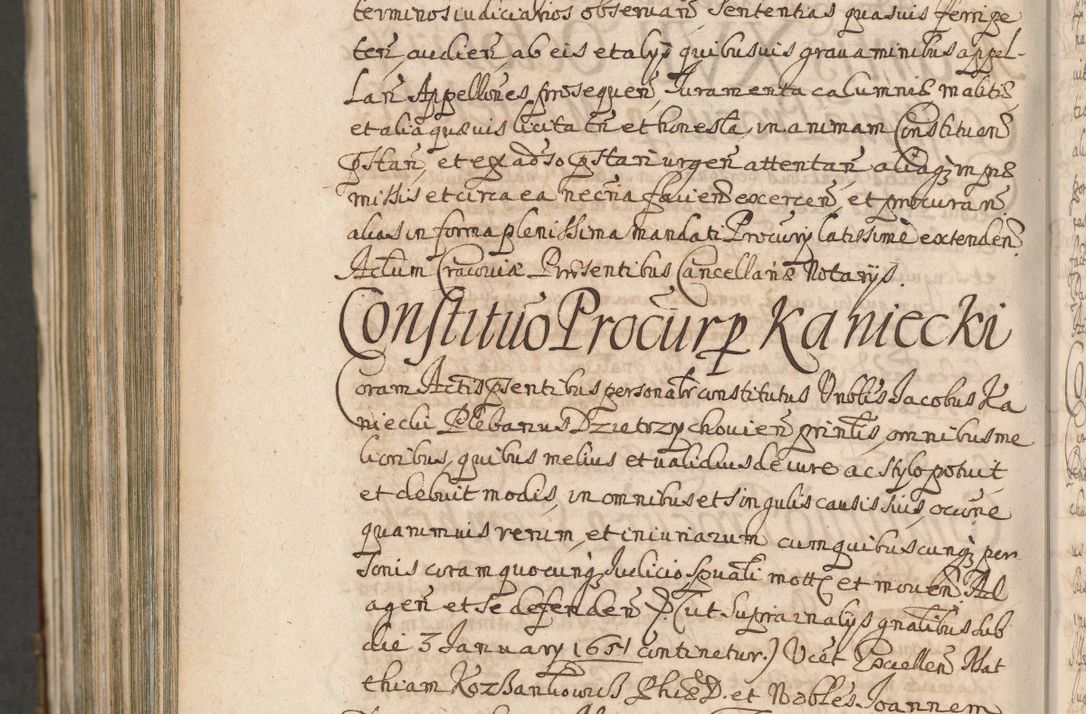 terminos iudiciarios observan̄ Sententias quasvis ferri pe
ten̄, audien̄ ab eis et alys quibusvis gravaminibus appel-
lan̄ Appellōnes prosequen̄, Iuramenta calumnię malitię
et alia quęvis licita tn̄ et honesta, in animam Constituen̄
pstan̄, et ex adverso pstari urgen̄ attentan̄ aliaq; in prę
missis et circa ea necr̄ia facien̄ exercen̄, et procuran̄
alias in forma plenissima mandati Procury latissimè extenden̄
Actum Cracovię Pręsentibus Cancellarię Notarys.
Constituo Procur p Kaniecki
Coram Actis pręsentibus personalr constitutus Vnoblis Jacobus Ka
niecki Plebanus Dzietrzychovien̄ prin̄lis, omnibus me
lioribus, quibus melius et validius de iure ac stylo potuit
et debuit modis, in omnibus et singulis causis suis, occōne
quarumvis rerum, et iniuriarum cum quibuscunq; per
sonis coram quocunq; Iudicio spūali mot. et moven̄ Ad
agen̄ et se defenden̄ p. (ut supra in alys gn̄alibus sub
die 3 January 1651 continetur.) Vcet Excellen̄ Mat
thiam Kozlankowicz Phię D. et Nobles Joannem